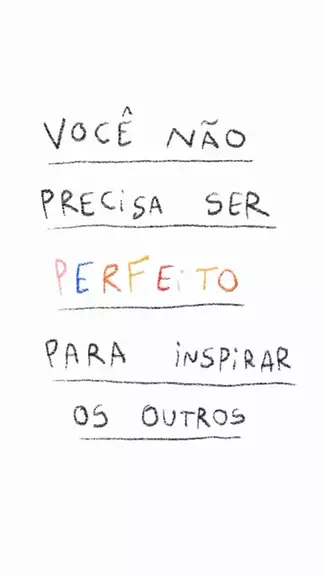 VOCÊ NÃO
PRECiSA SER
PERFEiTO
PARA iNSPiRAR
OS OUTROS